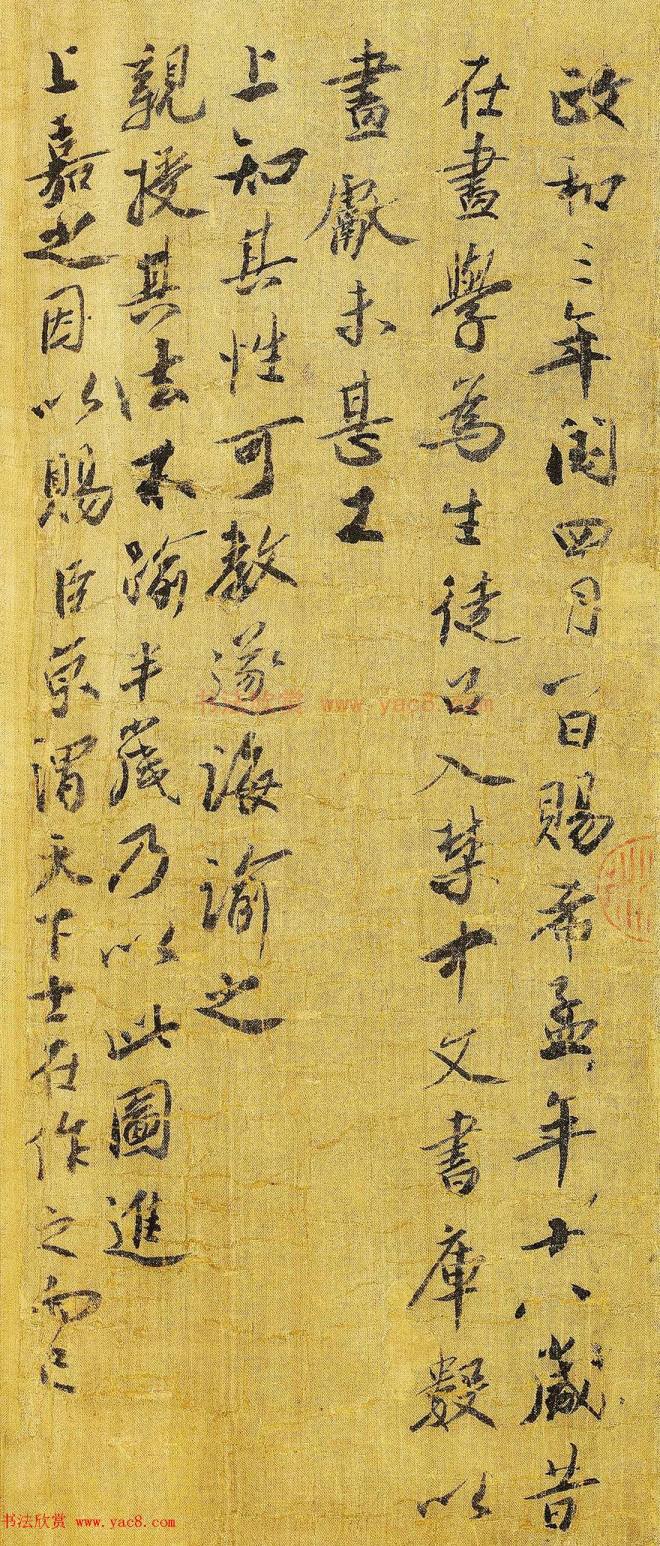 政和三年閏四月一日賜希孟年十八歲昔
在畫學為生徒召入禁中文書庫數以
畫獻未甚工
上知其性可教遂誨諭之
親授其法不踰半歲乃以此圖進
上嘉之因以賜臣京謂天下士在作之而已
书法欣赏 www.yac8.com
书法欣赏 www.yac8.com